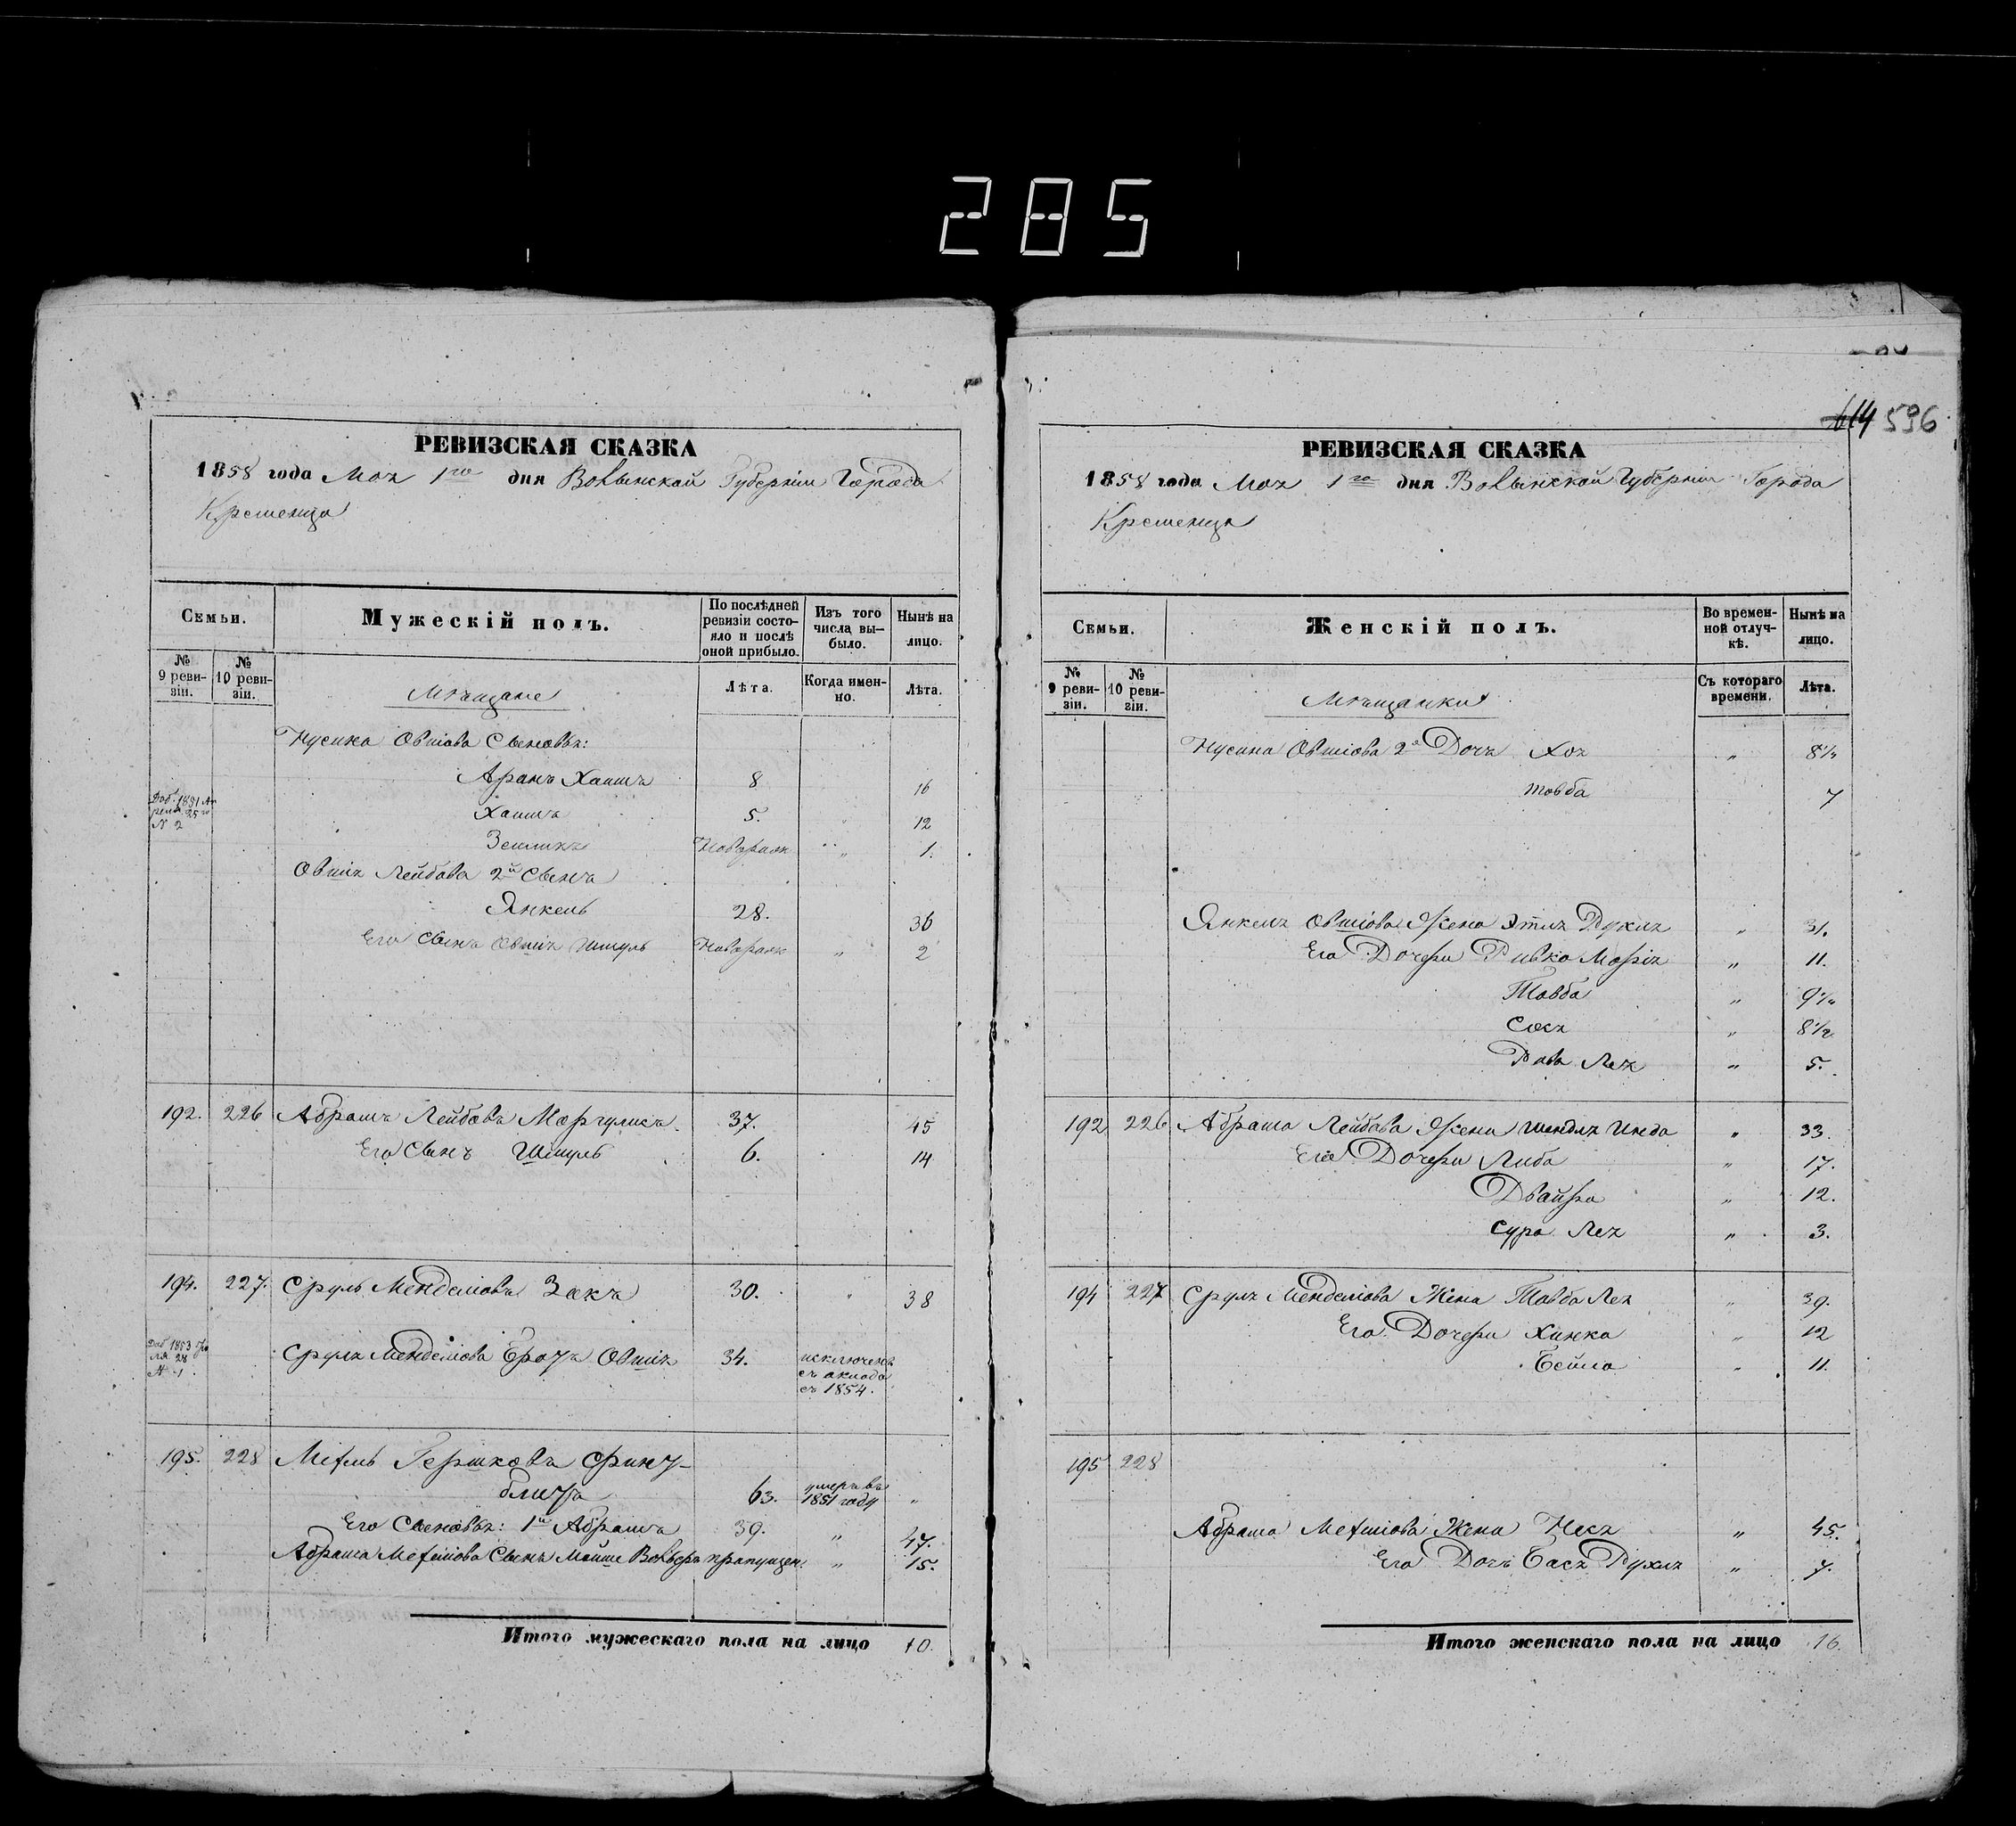 285
614 596
РЕВИЗСКАЯ СКАЗКА
1858 года Мая 1го дня Волынской Губернии Города
Кременца
Семьи.
Мужескій полъ.
По послѣдней ревизіи состояло и послѣ оной прибыло.
Изъ того числа выбыло.
Нынѣ на лицо.
№ 9 ревизіи.
№ 10 ревизіи.
Мѣщане
Лѣта.
Когда именно.
Лѣта.
Нусина Овшіова Сыновья:
Аранъ Хаимъ 8 16
Доб. 1851 Апреля 25го № 2
Хаимъ 5. 12
Зейликъ Новорожн " 1.
Овшія Лейбова 2й Сынъ
Янкель 28. 36
Его Сынъ Овшія Шмуль Новорожн " 2
192. 226 Абрамъ Лейбовъ Маргулисъ. 37. 45
Его Сынъ Шмуль 6. 14
194. 227. Сруль Менделіовъ Закъ 30. " 38
Доб 1853 28 № 1.
Сруля Менделіова Братъ Овшія 34. исключенъ съ оклада съ 1854.
195. 228 Мехель Гершковъ
63. умеръ въ 1851 году "
Его Сыновья: 1й Абрамъ 39. " 47.
Абрама Мехеліова Сынъ Мойше Вольберъ пропущен. " 15.
Итого мужескаго пола на лицо 10.
РЕВИЗСКАЯ СКАЗКА
1858 года Мая 1го дня Волынской Губерніи Города
Кременца
Семьи.
Женскій полъ.
Во временной отлучкѣ.
Нынѣ на лицо.
№ 9 ревизіи.
№ 10 ревизіи.
Мѣщанки
Съ котораго времени.
Лѣта.
Нусина Овшіова 2я Дочь Хая " 8½
Товба 7
Янкеля Овшіова Жена Этля Рухля " 31.
Его Дочери Ривка Марія " 11.
Товба " 9½
Сося " 8½
Лея " 5.
192 226 Абрама Лейбова Жена Шендля Инда " 33.
Его Дочери Либа " 17.
Двойра " 12.
Сура Лея " 3.
194 227 Сруля Менделіова Жена Товба Лея " 39.
Его Дочери Хинка " 12
Бейла " 11.
195 228
Абрама Мехеліова Жена Неся " 45.
Его Дочь Бася Рухля " 7.
Итого женскаго пола на лицо 16.